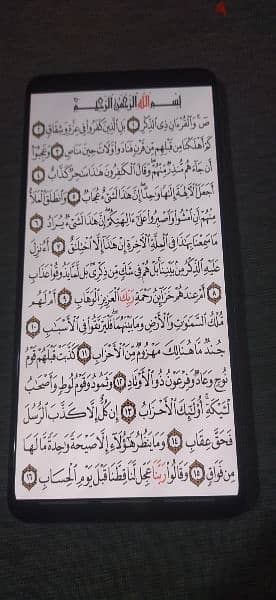 بِسْمِ اللَّهِ الرَّحْمَٰنِ الرَّحِيمِ
صٓ وَالْقُرْءَانِ ذِي الذِّكْرِ ١ بَلِ الَّذِينَ كَفَرُوا فِي عِزَّةٍ وَشِقَاقٍ ٢
كَمْ أَهْلَكْنَا مِن قَبْلِهِم مِّن قَرْنٍ فَنَادَوا وَّلَاتَ حِينَ مَنَاصٍ ٣ وَعَجِبُوا
أَن جَاءَهُم مُّنذِرٌ مِّنْهُمْ وَقَالَ الْكَٰفِرُونَ هَٰذَا سَٰحِرٌ كَذَّابٌ ٤
أَجَعَلَ الْءَالِهَةَ إِلَٰهًا وَٰحِدًا إِنَّ هَٰذَا لَشَيْءٌ عُجَابٌ ٥ وَانطَلَقَ الْمَلَأُ
مِنْهُمْ أَنِ امْشُوا وَاصْبِرُوا عَلَىٰ ءَالِهَتِكُمْ إِنَّ هَٰذَا لَشَيْءٌ يُرَادُ ٦
مَا سَمِعْنَا بِهَٰذَا فِي الْمِلَّةِ الْءَاخِرَةِ إِنْ هَٰذَا إِلَّا اخْتِلَٰقٌ ٧ أَءُنزِلَ
عَلَيْهِ الذِّكْرُ مِن بَيْنِنَا بَلْ هُمْ فِي شَكٍّ مِّن ذِكْرِي بَل لَّمَّا يَذُوقُوا عَذَابِ
٨ أَمْ عِندَهُمْ خَزَائِنُ رَحْمَةِ رَبِّكَ الْعَزِيزِ الْوَهَّابِ ٩ أَمْ لَهُم
مُّلْكُ السَّمَٰوَٰتِ وَالْأَرْضِ وَمَا بَيْنَهُمَا فَلْيَرْتَقُوا فِي الْأَسْبَٰبِ ١٠
جُندٌ مَّا هُنَالِكَ مَهْزُومٌ مِّنَ الْأَحْزَابِ ١١ كَذَّبَتْ قَبْلَهُمْ قَوْمُ
نُوحٍ وَعَادٌ وَفِرْعَوْنُ ذُو الْأَوْتَادِ ١٢ وَثَمُودُ وَقَوْمُ لُوطٍ وَأَصْحَٰبُ
لْـَٔيْكَةِ أُولَٰئِكَ الْأَحْزَابُ ١٣ إِن كُلٌّ إِلَّا كَذَّبَ الرُّسُلَ
فَحَقَّ عِقَابِ ١٤ وَمَا يَنظُرُ هَٰؤُلَاءِ إِلَّا صَيْحَةً وَٰحِدَةً مَّا لَهَا
مِن فَوَاقٍ ١٥ وَقَالُوا رَبَّنَا عَجِّل لَّنَا قِطَّنَا قَبْلَ يَوْمِ الْحِسَابِ ١٦